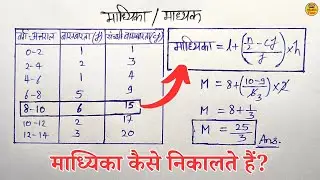 माध्यिका / माध्यक
वर्ग-अन्तराल बारम्बारता (f) संचयी बारम्बारता (cf)
0-2 1 1
2-4 2 3
4-6 1 4
6-8 5 9
8-10 6 15
10-12 2 17
12-14 3 20
माध्यिका = l + ((n/2 - cf)/f) × h
M = 8 + ((10-9)/6 3) × 2
M = 8 + 1/3
M = 25/3 Ans.
माध्यिका कैसे निकालते हैं?